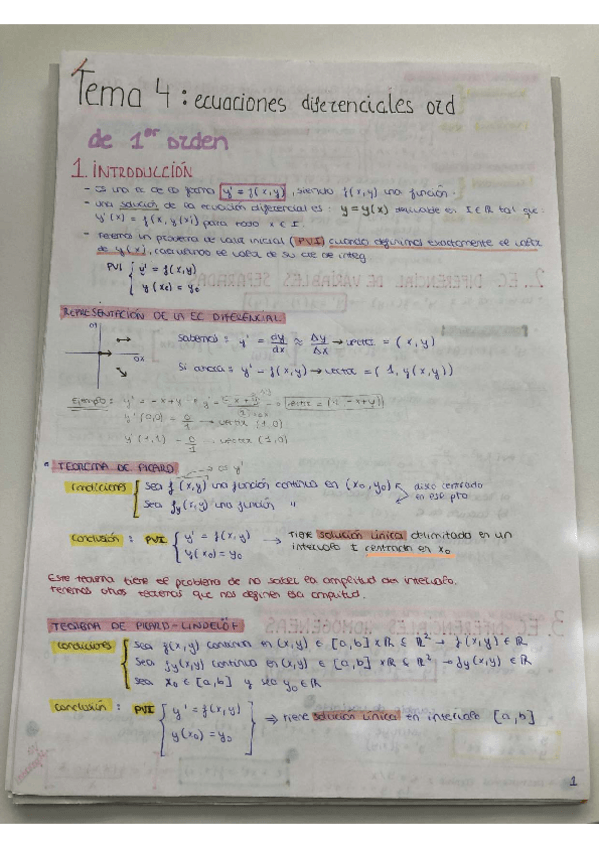 Tema 4: ecuaciones diferenciales ord
de 1er orden
1. INTRODUCCIÓN
- Es una ec de la forma y' = f(x,y), siendo f(x,y) una función.
- una solución de la ecuación diferencial es: y = y(x) derivable en I ∈ R tal que:
y'(x) = f(x, y(x)) para todo x ∈ I.
- Tenemos un problema de valor inicial (PVI) cuando definimos exactamente el valor
de y(x), calculamos el valor de su cte de integ.
PVI { y' = f(x,y)
y(x0) = y0
REPRESENTACIÓN DE LA EC DIFERENCIAL
OY
OX
Sabemos: y' = dy/dx ≈ Δy/Δx → vector = (x,y)
Si ahora: y' = f(x,y) → vector = (1, y(x,y))
Ejemplo: y' = -x+y
y'(0,0) = 0/1 → vector (1,0)
y'(1,1) = 0/1 vector (1,0)
TEOREMA DE PICARD
→ es y'
Condiciones { Sea f(x,y) una función continua en (x0,y0)
Sea fy(x,y) una función "
disco centrado
en ese pto
Conclusión: PVI { y' = f(x,y)
y(x0) = y0
→ tiene solución única delimitado en un
intervalo I centrado en x0
Este teorema tiene el problema de no saber la amplitud del intervalo.
Tenemos otros teoremas que nos definen esa amplitud.
TEOREMA DE PICARD-LINDELÖF
Condiciones { Sea f(x,y) continua en (x,y) ∈ [a,b] x R ⊆ R² → f(x,y) ∈ R
Sea fy(x,y) continua en (x,y) ∈ [a,b] x R ⊆ R² → fy(x,y) ∈ R
Sea x0 ∈ [a,b] y sea y0 ∈ R
Conclusión: PVI [ y' = f(x,y)
y(x0) = y0 ]
→ tiene solución única en intervalo [a,b]
1